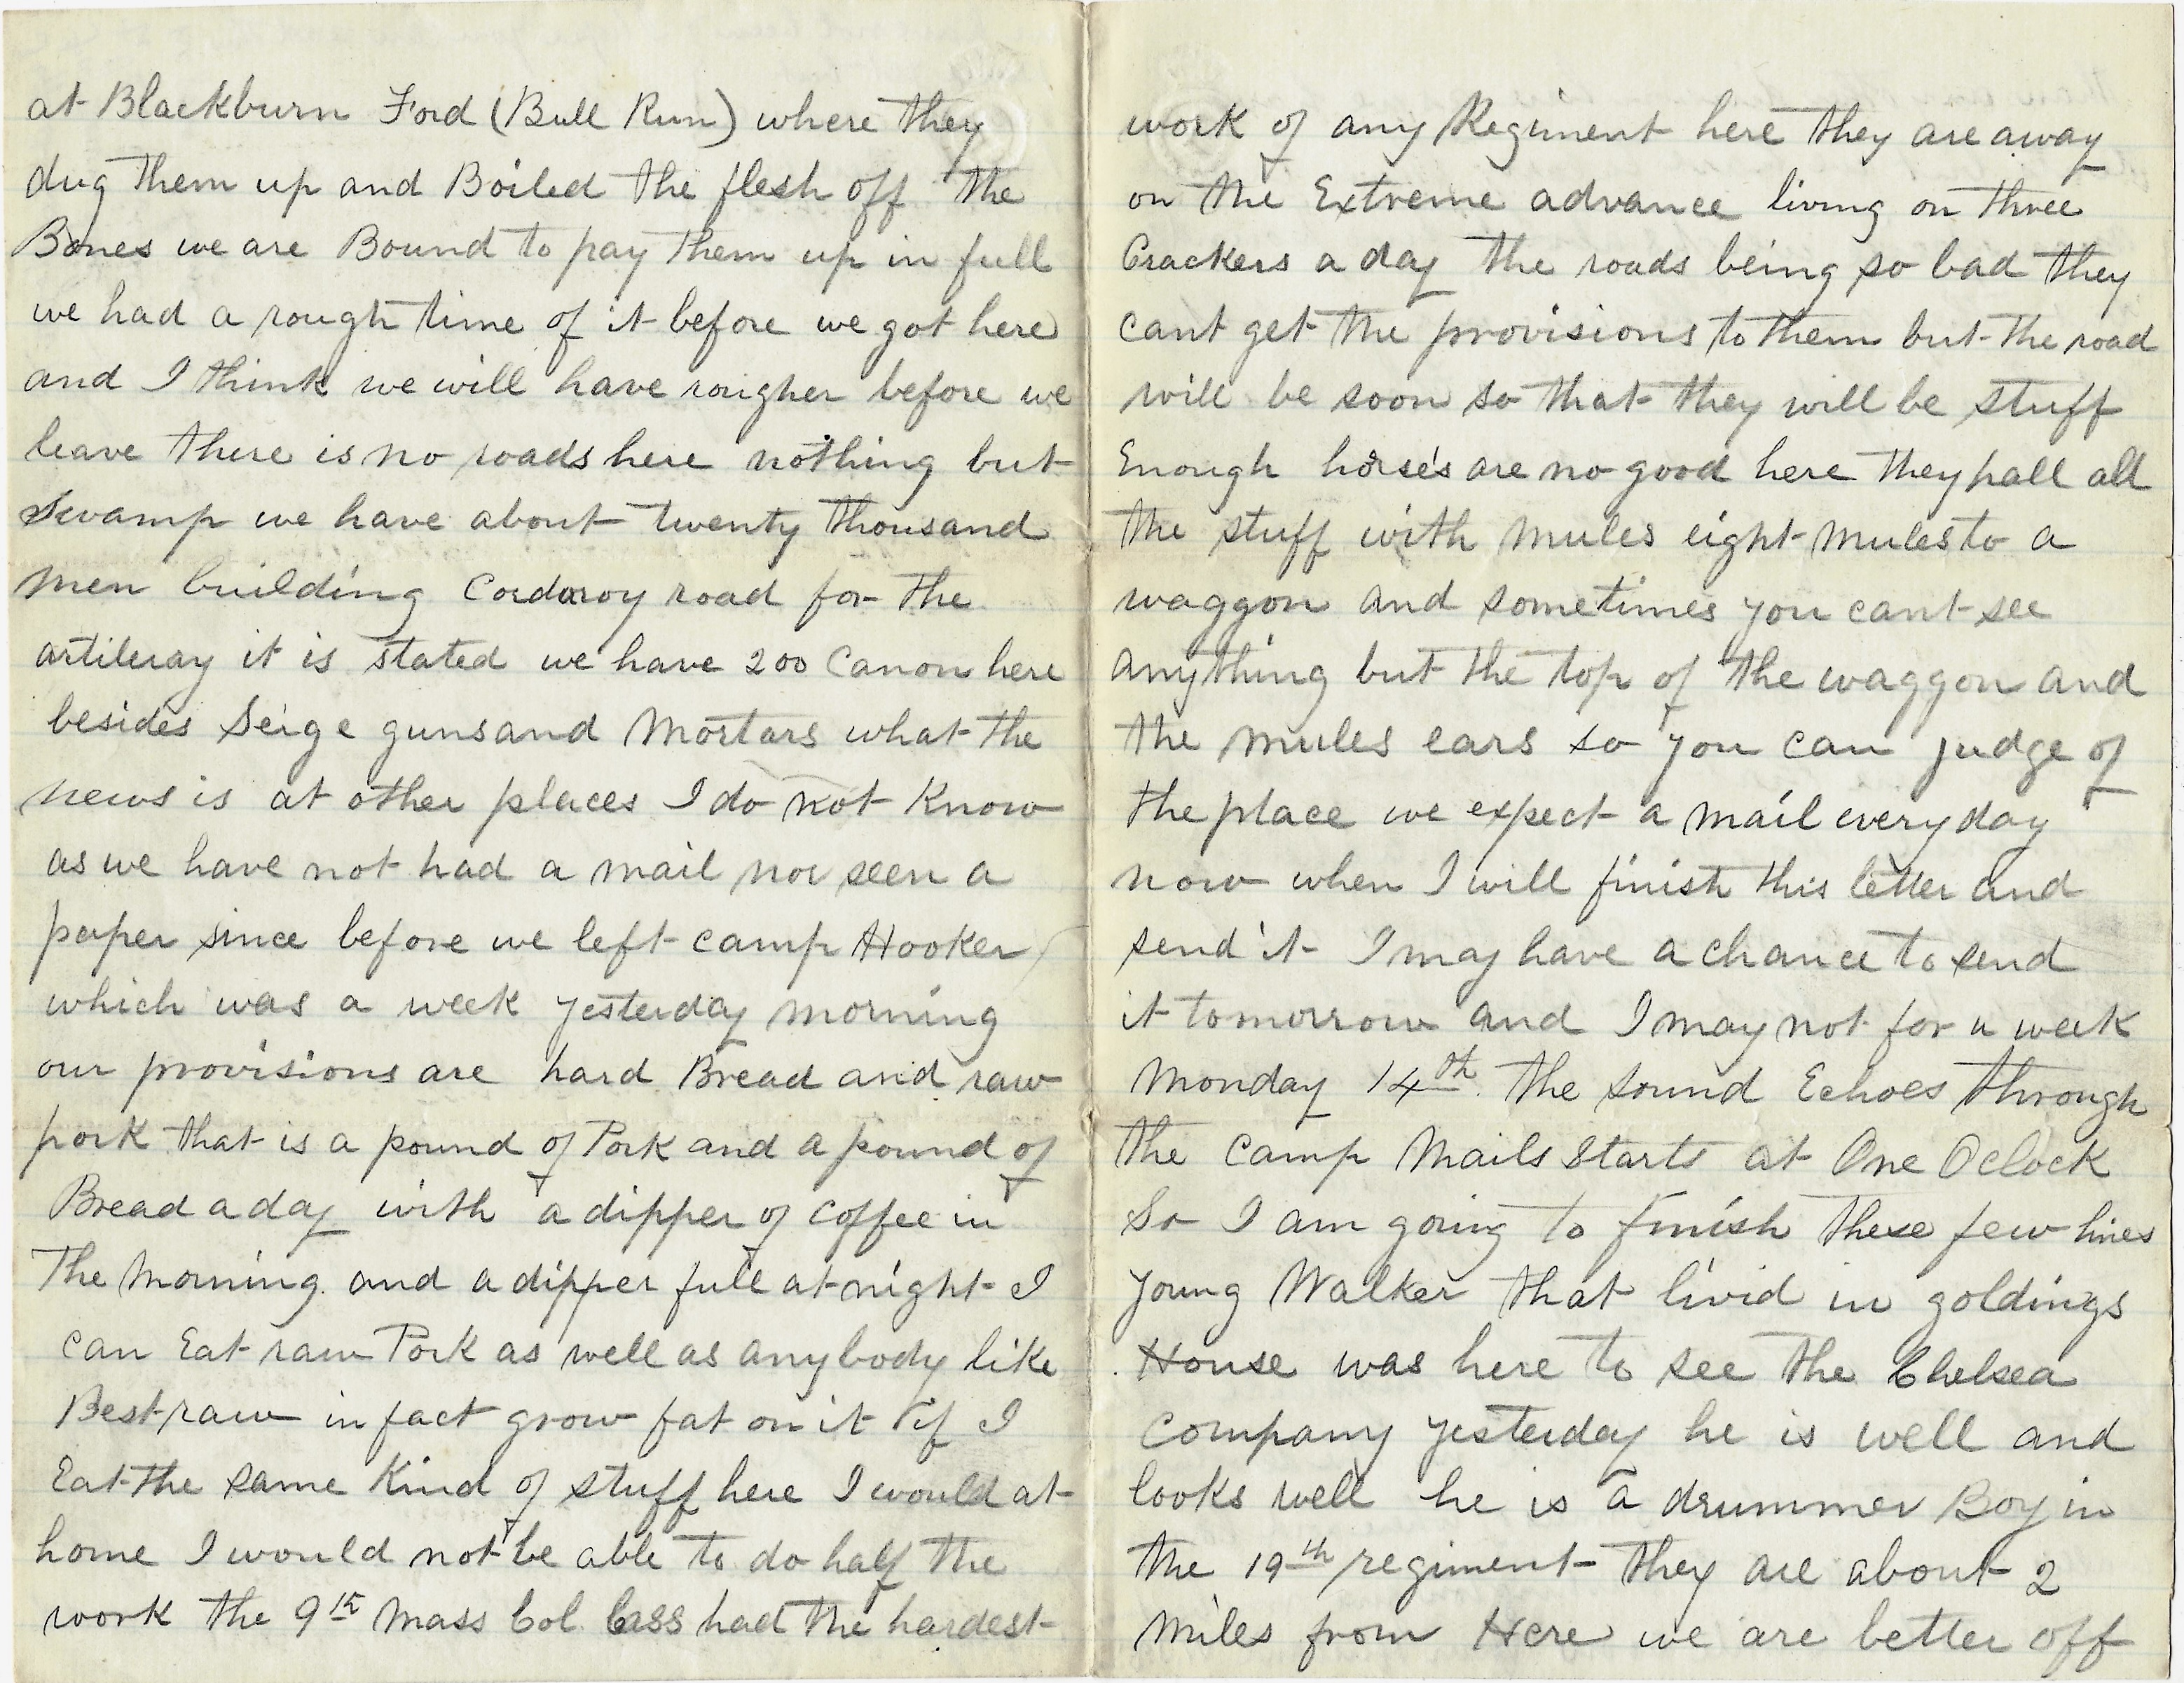 at Blackburn Ford (Bull Run) where they
dug them up and Boiled the flesh off the
Bones we are Bound to pay them up in full
we had a rough time of it before we got here
and I think we will have rougher before we
leave there is no roads here nothing but
Swamp we have about twenty thousand
men building Corduroy road for the
artileray it is stated we have 200 Canon here
besides Seige guns and Mortars what the
news is at other places I do not Know
as we have not had a mail nor seen a
paper since before we left camp Hooker
which was a week yesterday morning
our provisions are hard Bread and raw
pork that is a pound of Pork and a pound of
Bread a day with a dipper of coffee in
the Morning. and a dipper full at night I
can Eat raw Pork as well as anybody like
Best raw in fact grow fat on it if I
Eat the same Kind of stuff here I would at
home I would not be able to do half the
work the 9th Mass Col Cass had the hardest
work of any Regiment here they are away
on the Extreme advance living on three
Crackers a day the roads being so bad they
cant get the provisions to them but the road
will be soon so that they will be stuff
Enough horse's are no good here they hall all
the stuff with mules eight mules to a
waggon and sometimes you cant see
anything but the top of the waggon and
the mules ears so you can judge of
the place we expect a mail every day
now when I will finish this letter and
send it I may have a chance to send
it tomorrow and I may not for a week
Monday 14th. the sound Echoes through
the camp Mails Starts at One Oclock
So I am going to finish these few lines
young Walker that livid in goldings
House was here to see the Chelsea
company yesterday he is well and
looks well he is a drummer Boy in
the 19th regiment they are about 2
miles from Here we are better off